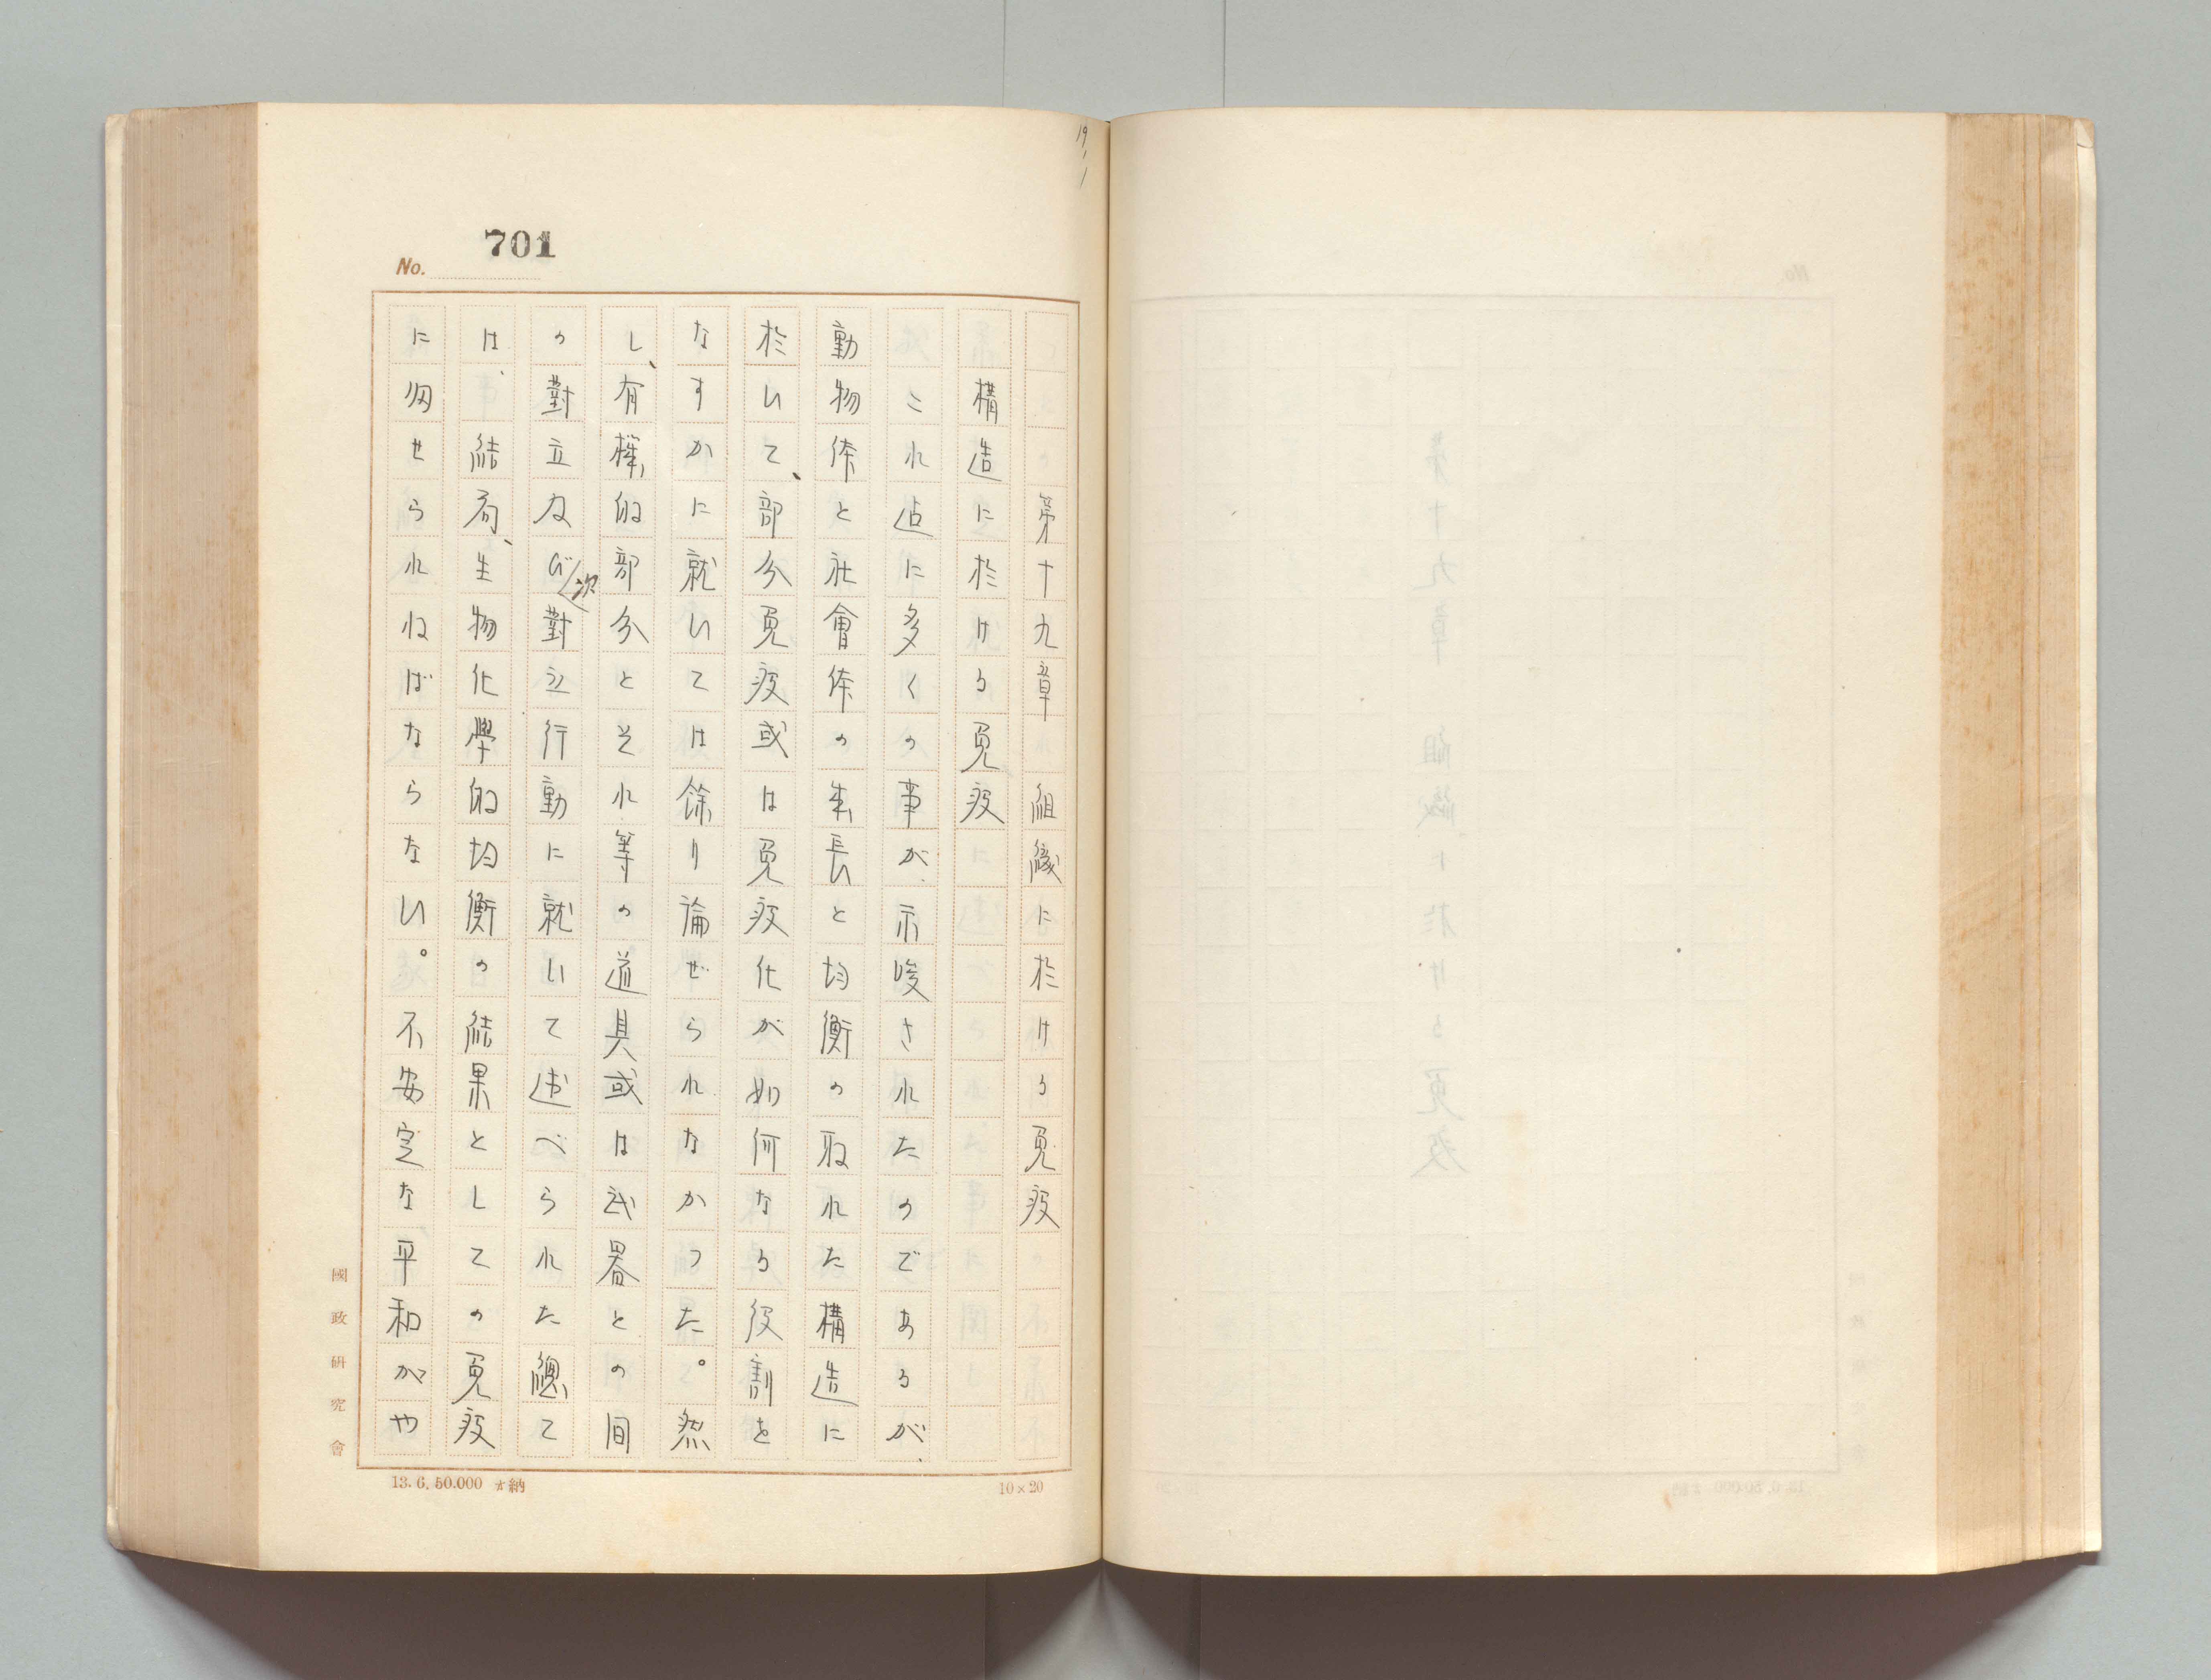 19/1
701
No.
第十九章 組織に於ける免疫
構造に於ける免疫
これ迄に多くの事が示唆されたのであるが、
動物体と社會体の生長と均衡の取れた構造に
於いて、部分免疫或は免疫化が如何なる役割を
なすかに就いては餘り論ぜられなかつた。然
し、有機的部分とそれ等の道具或は武器との間
の對立及び次對立行動に就いて述べられた總て
は、結局、生物化學的均衡の結果としての免疫
に帰せられねばならない。不安定な平和がや
國政研究會
13.6.50.000 納
10×20